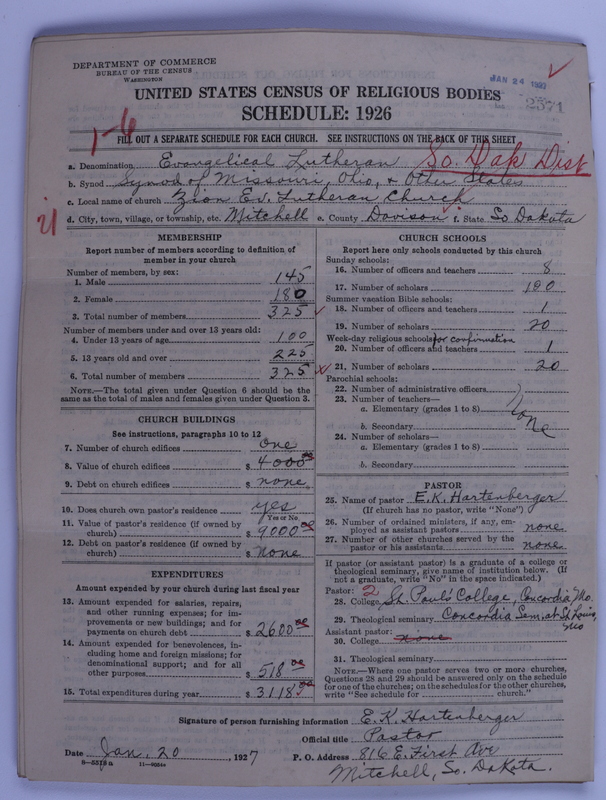 DEPARTMENT OF COMMERCE
BUREAU OF THE CENSUS
WASHINGTON
JAN 24 1927
2371
UNITED STATES CENSUS OF RELIGIOUS BODIES
SCHEDULE: 1926
1-6
FILL OUT A SEPARATE SCHEDULE FOR EACH CHURCH. SEE INSTRUCTIONS ON THE BACK OF THIS SHEET
a. Denomination Evangelical Lutheran So. Dak Dist
b. Synod Synod of Missouri, Ohio, & Other States
c. Local name of church Zion Ev. Lutheran Church
d. City, town, village, or township, etc. Mitchell e. County Davison f. State So Dakota
MEMBERSHIP
Report number of members according to definition of
member in your church
Number of members, by sex:
1. Male 145
2. Female 180
3. Total number of members 325
Number of members under and over 13 years old:
4. Under 13 years of age 100
5. 13 years old and over 225
6. Total number of members 325
NOTE.—The total given under Question 6 should be the
same as the total of males and females given under Question 3.
CHURCH BUILDINGS
See instructions, paragraphs 10 to 12
7. Number of church edifices one
8. Value of church edifices $ 4000 00
9. Debt on church edifices $ none
10. Does church own pastor's residence yes
Yes or No
11. Value of pastor's residence (if owned by
church) $ 9000 00
12. Debt on pastor's residence (if owned by
church) $ None
EXPENDITURES
Amount expended by your church during last fiscal year
13. Amount expended for salaries, repairs,
and other running expenses; for im-
provements or new buildings; and for
payments on church debt $ 2600 00
14. Amount expended for benevolences, in-
cluding home and foreign missions; for
denominational support; and for all
other purposes $ 518 00
15. Total expenditures during year $ 3118 00
CHURCH SCHOOLS
Report here only schools conducted by this church
Sunday schools:
16. Number of officers and teachers 8
17. Number of scholars 120
Summer vacation Bible schools:
18. Number of officers and teachers 1
19. Number of scholars 20
Week-day religious schools: for confirmation
20. Number of officers and teachers 1
21. Number of scholars 20
Parochial schools:
22. Number of administrative officers
23. Number of teachers—
a. Elementary (grades 1 to 8)
b. Secondary None
24. Number of scholars—
a. Elementary (grades 1 to 8)
b. Secondary
PASTOR
25. Name of pastor E. K. Hartenberger
(If church has no pastor, write "None")
26. Number of ordained ministers, if any, em-
ployed as assistant pastors none
27. Number of other churches served by the
pastor or his assistants none
If pastor (or assistant pastor) is a graduate of a college or
theological seminary, give name of institution below. (If
not a graduate, write "No" in the space indicated.)
Pastor: 2
28. College St. Paul's College, Concordia, Mo.
29. Theological seminary Concordia Sem. at St. Louis, Mo
Assistant pastor:
30. College none
31. Theological seminary
NOTE.—Where one pastor serves two or more churches,
Questions 28 and 29 should be answered only on the schedule
for one of the churches; on the schedules for the other churches,
write "See schedule for church."
Signature of person furnishing information E. K. Hartenberger
Official title Pastor
Date Jan. 20, 1927 P. O. Address 816 E. First Ave
Mitchell, So. Dakota.